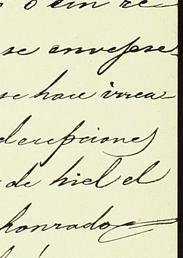 se envejese
se hace irrea
decepciones
de hiel el
honrado